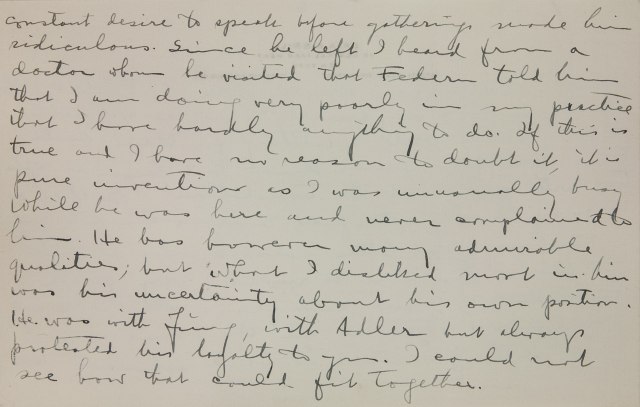 constant desire to speak before gatherings made him
ridiculous. Since he left I heard from a
doctor whom he visited that Federn told him
that I am doing very poorly in my practice
that I have hardly anything to do. If this is
true and I have no reason to doubt it, it is
pure invention as I was unusually busy
while he was here and never complained to
him. He has however many admirable
qualities; but what I disliked most in him
was his uncertainty about his own position.
He was with Jung, with Adler but always
protested his loyalty to you. I could not
see how that could fit together.